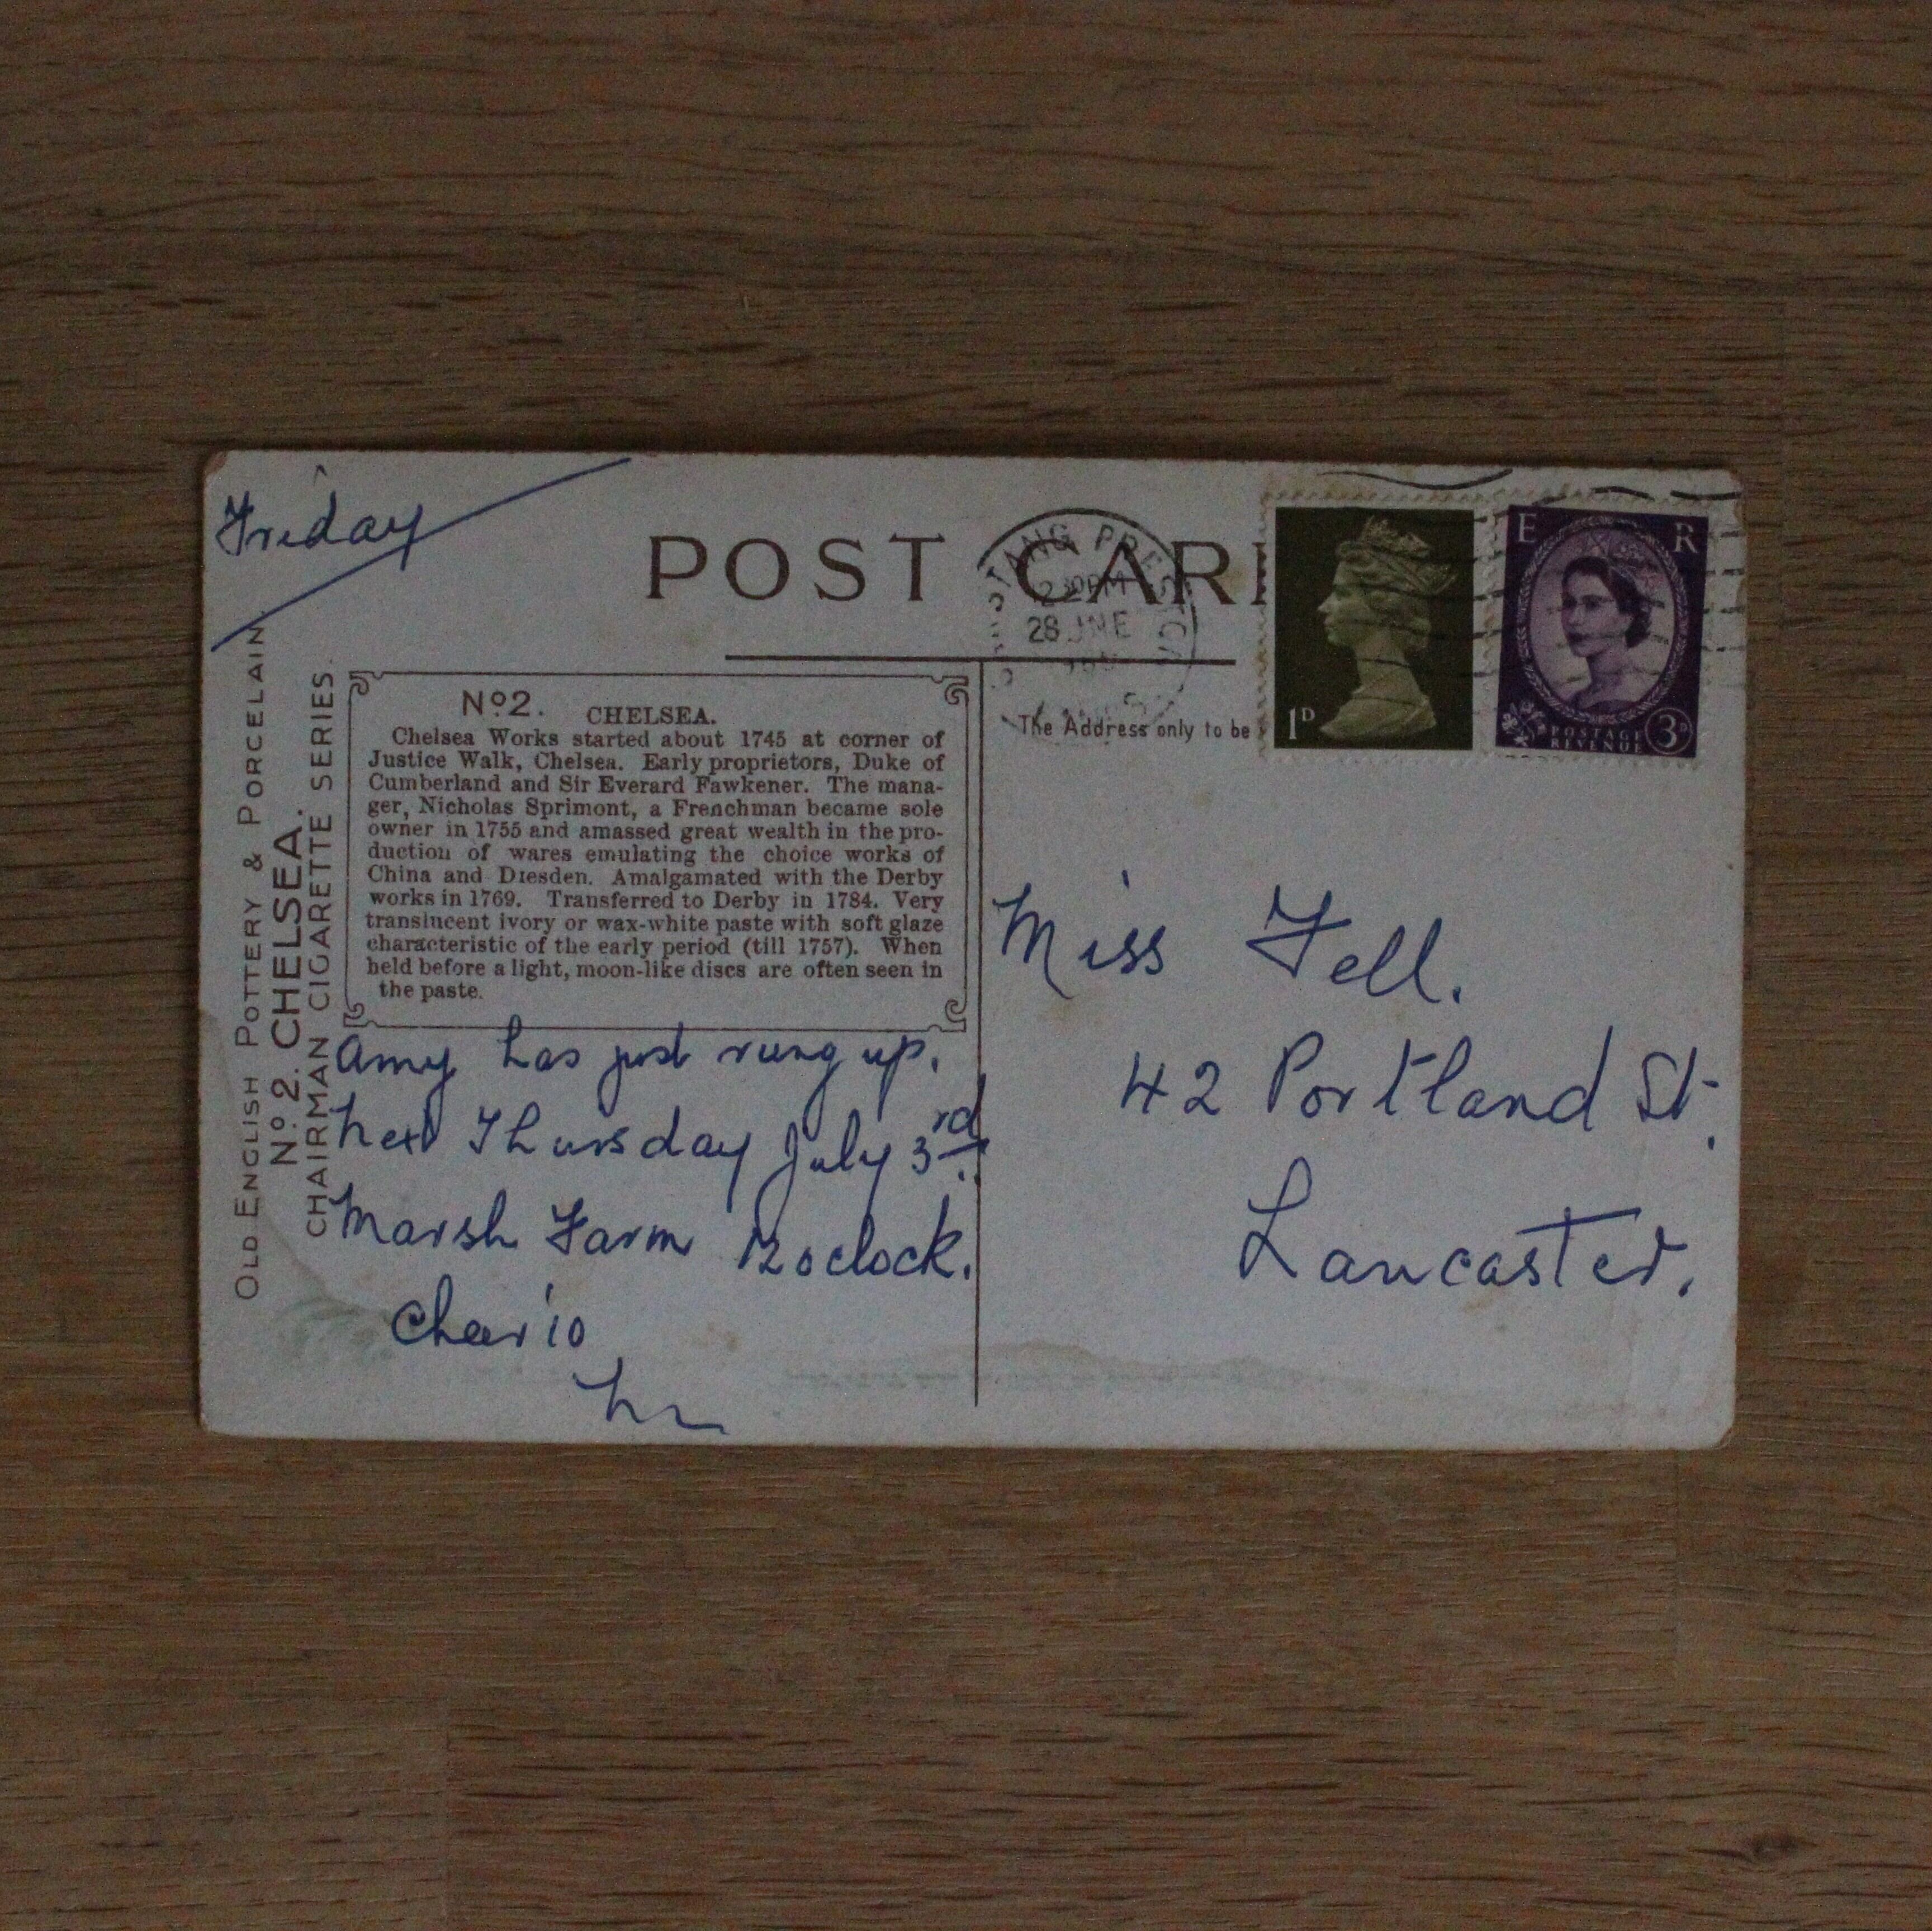 Friday
POST CAR
TANG PRES
28 JNE
1D
E R
POSTAGE
REVENUE
3D
OLD ENGLISH POTTERY & PORCELAIN
No 2. CHELSEA.
CHAIRMAN CIGARETTE SERIES.
No 2. CHELSEA.
Chelsea Works started about 1745 at corner of
Justice Walk, Chelsea. Early proprietors, Duke of
Cumberland and Sir Everard Fawkener. The mana-
ger, Nicholas Sprimont, a Frenchman became sole
owner in 1755 and amassed great wealth in the pro-
duction of wares emulating the choice works of
China and Dresden. Amalgamated with the Derby
works in 1769. Transferred to Derby in 1784. Very
translucent ivory or wax-white paste with soft glaze
characteristic of the early period (till 1757). When
held before a light, moon-like discs are often seen in
the paste.
Amy has just rung up.
Next Thursday July 3rd.
Marsh Farm 12 oclock.
Cheerio
The Address only to be
Miss Fell.
42 Portland St.
Lancaster.